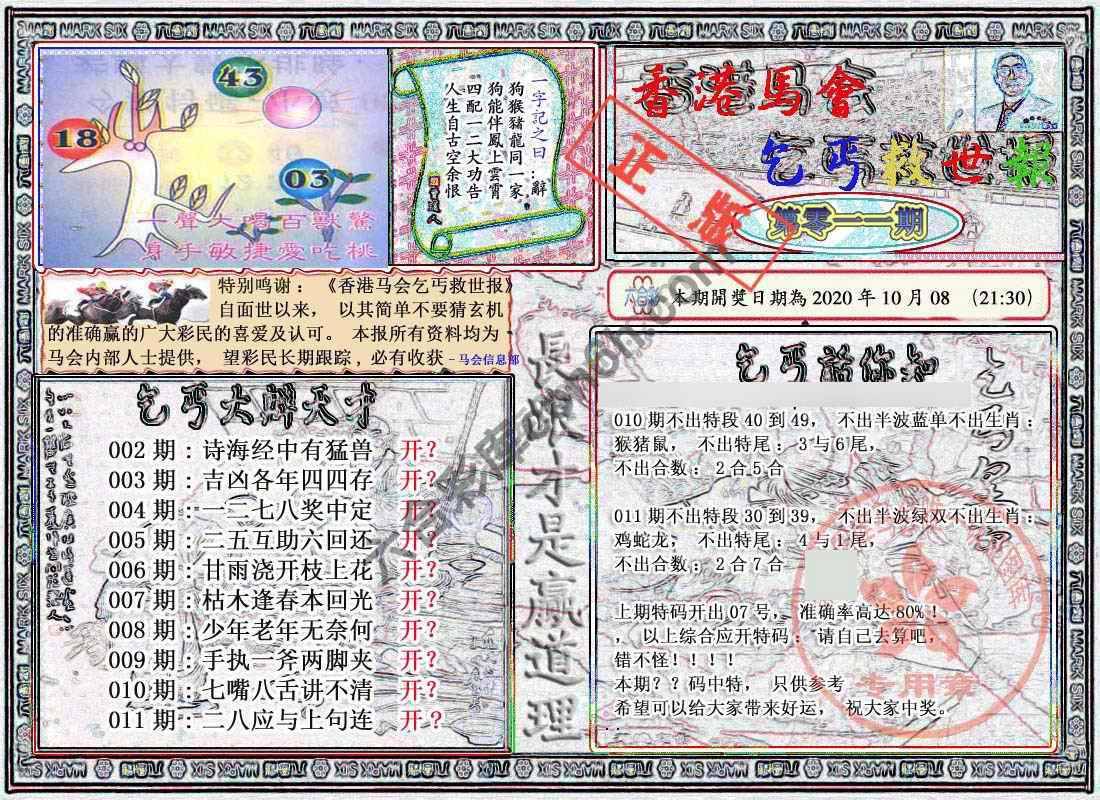 43
18
03
一聲大喝百獸驚
身手敏捷愛吃桃
一字記之曰：辭
狗猴豬龍同一家
狗能伴鳳上雲霄
四配一二大功告
人生自古空余恨
香港馬會
乞丐救世報
第零一一期
正版
特别鸣谢：《香港马会乞丐救世报》
自面世以来， 以其简单不要猜玄机
的准确赢的广大彩民的喜爱及认可。 本报所有资料均为
马会内部人士提供， 望彩民长期跟踪，必有收获-马会信息部
六合彩
本期開獎日期為 2020 年 10 月 08 （21:30）
長跟才是赢道理
002 期：诗海经中有猛兽 开？
003 期：吉凶各年四四存 开？
004 期：一二七八奖中定 开？
005 期：二五互助六回还 开？
006 期：甘雨浇开枝上花 开？
007 期：枯木逢春本回光 开？
008 期：少年老年无奈何 开？
009 期：手执一斧两脚夹 开？
010 期：七嘴八舌讲不清 开？
011 期：二八应与上句连 开？
010 期不出特段 40 到 49， 不出半波蓝单不出生肖：
猴猪鼠， 不出特尾：3 与 6 尾，
不出合数：2 合 5 合
011 期不出特段 30 到 39， 不出半波绿双不出生肖：
鸡蛇龙， 不出特尾：4 与 1 尾，
不出合数：2 合 7 合
上期特码开出 07 号， 准确率高达 80%！
， 以上综合应开特码：请自己去算吧，
错不怪！！！！
本期？？码中特， 只供参考
希望可以给大家带来好运， 祝大家中奖。
专用章
MARK SIX